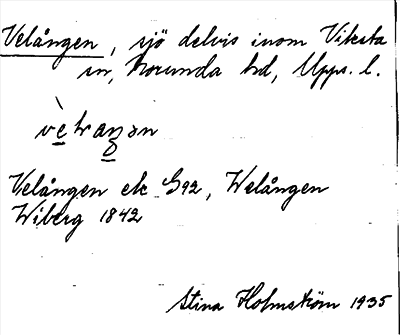 Velången, sjö delvis inom Viksta
sn, Norunda hd, Upps. l.
Velången ek G92, Welången
Wiberg 1842
Stina Holmström 1935